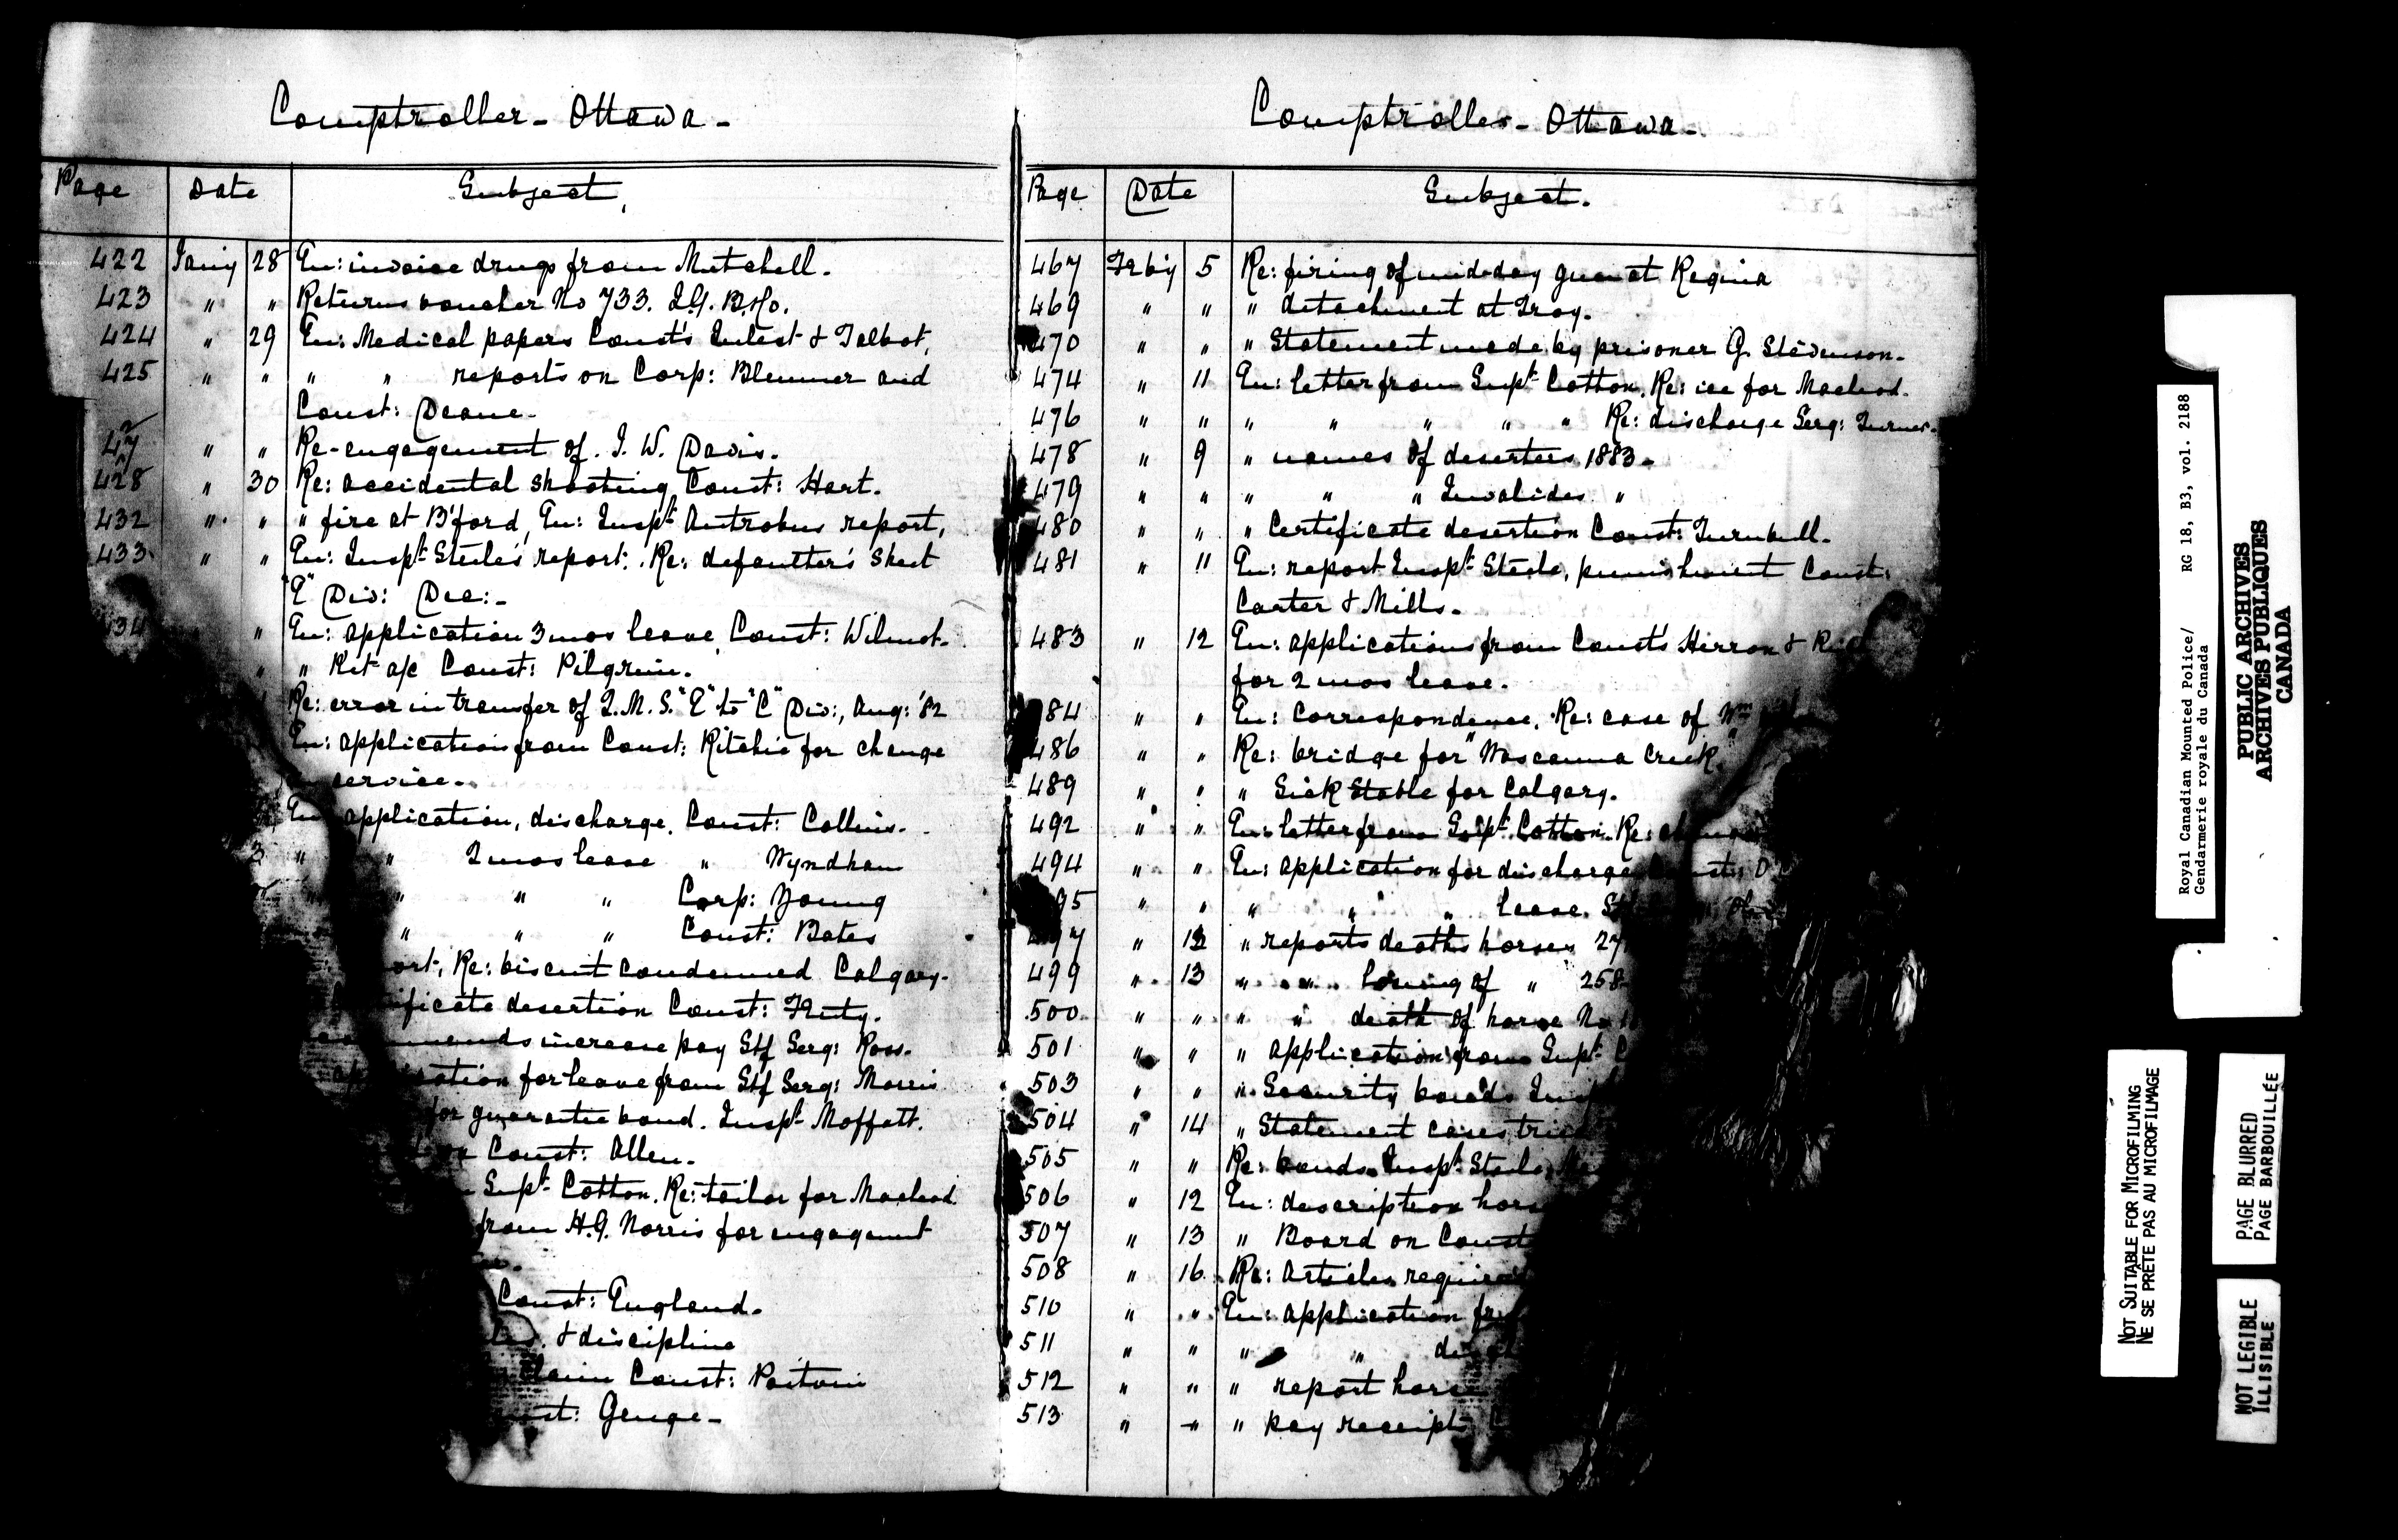 Comptroller - Ottawa -
Page Date Subject,
422 Jany 28 En: invoice drugs from Mitchell.
423 " " Returns voucher No 733. I.G. B.Ho.
424 " 29 En: Medical papers Const's & Talbot,
425 " " " " reports on Corp: Blemmer and
Const: Deane -
" " Re-engagement of J. W. Davis.
428 " 30 Re: accidental shooting Const: Hart.
432 " " " fire at B'ford, En: Inspt Antrobus report,
433 " " En: Inspt Steele's report: Re: defaulter's sheet
"E" Div: Dec: -
" En: application 3 mos leave, Const: Wilmot.
" " Kit a/c Const: Pilgrim.
Re: error in transfer of Q.M.S. "E" to "C" Div:, Aug: '82
En: application from Const: Ritchie for change
service -
En application, discharge, Const: Collins.
3 " " 2 mos leave " Wyndham
" " " Corp: Young
" " " Const: Bates
Re: biscuit condemned Calgary.
desertion Const:
increase pay Stf Serg: Ross.
for leave from Stf Serg: Morris
for guarantee bond. Inspt Moffatt.
Const: Allen.
Supt Cotton. Re: tailor for Macleod
from H.G. Norris for engagement
Const: England.
& discipline
Const:
Genge -
Comptroller - Ottawa -
Page Date Subject.
467 Feby 5 Re: firing of mid-day gun at Regina
469 " " " detachment at Troy.
470 " " " Statement made by prisoner G. Stevenson.
474 " 11 En: letter from Supt Cotton. Re: ice for Macleod.
476 " " " " " " " Re: discharge Serg: Turner.
478 " 9 " names of deserters 1883 -
479 " " " " " Invalides "
480 " " " Certificate desertion Const: Turnbull.
481 " 11 En: report Inspt Steele, punishment Const:
Carter & Mills.
483 " 12 En: applications from Const's Herron &
for 2 mos leave.
84 " " En: Correspondence. Re: case of Wm
486 " " Re: bridge for "Wascanna Creek
489 " " " Sick Stable for Calgary.
492 " " En: letter from Supt Cotton. Re:
494 " " En: application for discharge
95 " " " " " leave.
97 " 12 " reports deaths horses 27
499 " 13 " " losing of " 258
500 " " " " death of horse No
501 " " " application from Supt
503 " " " Security bonds
504 " 14 " Statement cases
505 " " Re: bonds Inspt Steele,
506 " 12 En: description
507 " 13 " Board on Const
508 " 16 Re: Articles
510 " " En: application
511 " " " "
512 " " " report
513 " " " pay receipt
Royal Canadian Mounted Police/ RG 18, B3, vol. 2188
Gendarmerie royale du Canada
PUBLIC ARCHIVES
ARCHIVES PUBLIQUES
CANADA
NOT SUITABLE FOR MICROFILMING
NE SE PRÊTE PAS AU MICROFILMAGE
PAGE BLURRED
PAGE BARBOUILLÉE
NOT LEGIBLE
ILLISIBLE